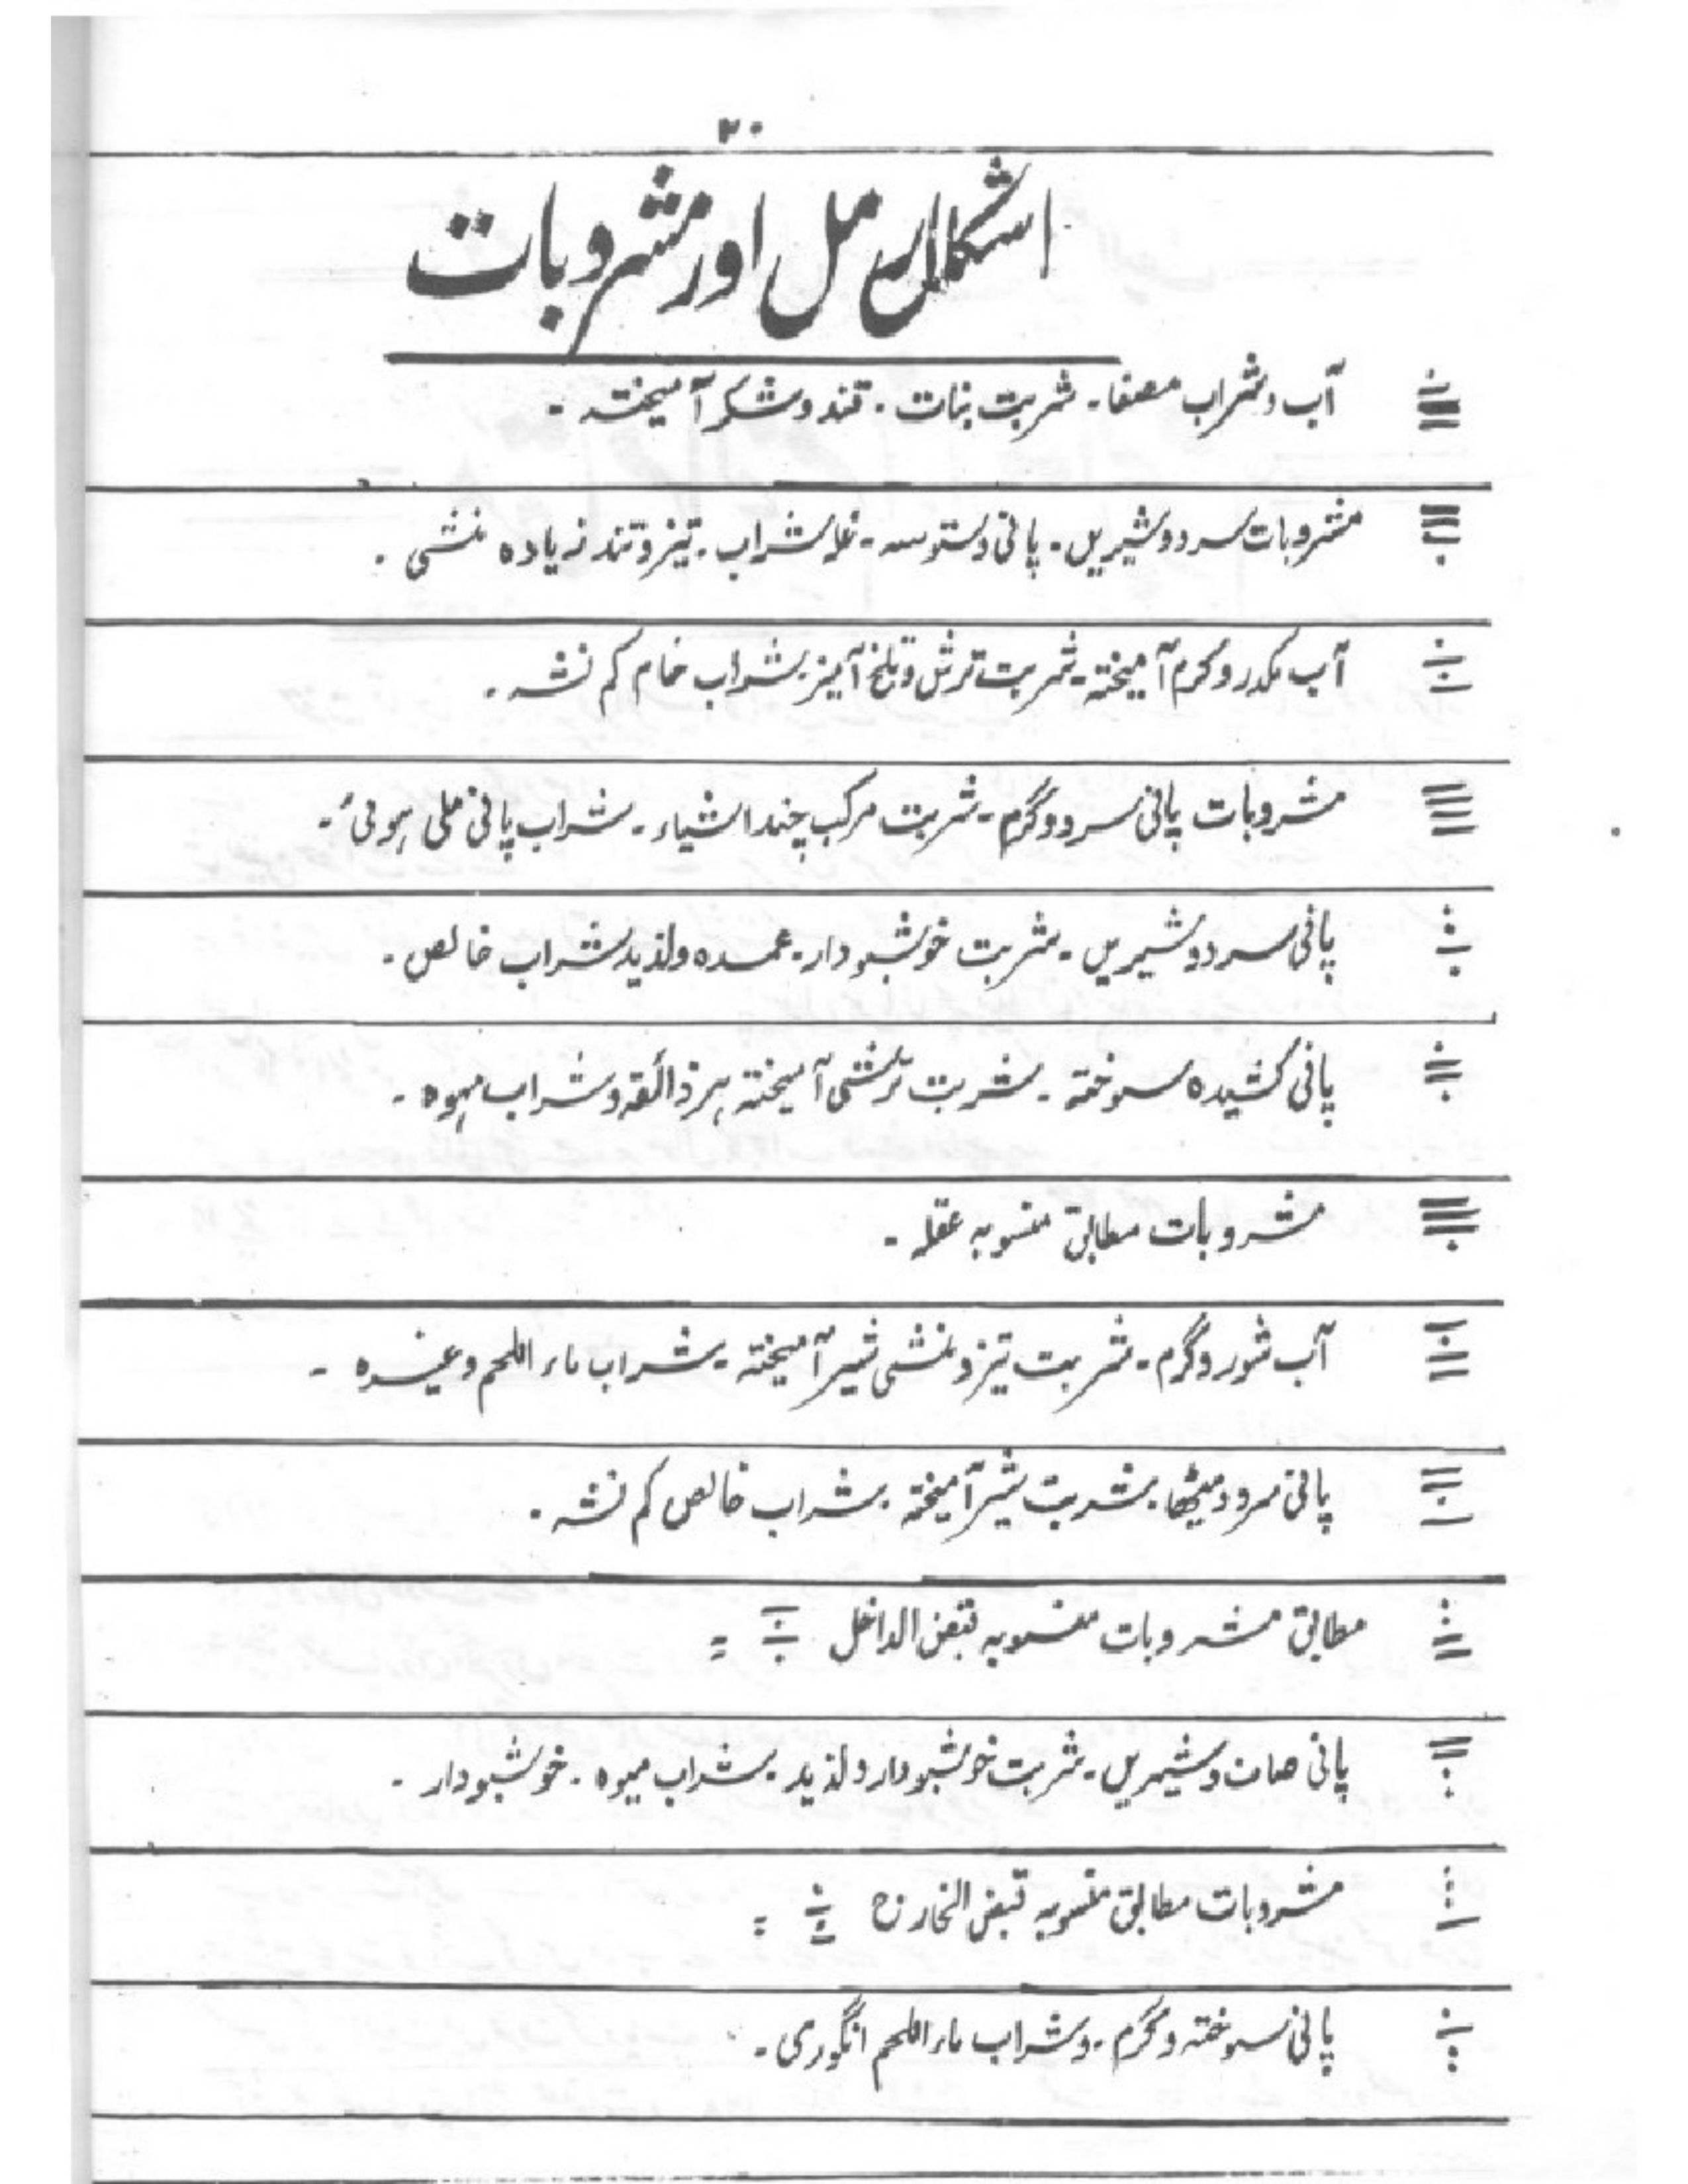 ۲۰
اشکال رمل اور مشروبات
آب و شراب مصفا۔ شربت بنات۔ قند و شکر آمیختہ۔
مشروبات سرد و شیریں۔ پانی و ستو سہ۔ غلہ شراب۔ تیز و تند زیادہ نشی۔
آب مکدر و گرم آمیختہ۔ شربت ترش و تلخ آمیز۔ شراب خام کم نشہ۔
مشروبات پانی سرد و گرم۔ شربت مرکب چند اشیاء۔ شراب پانی ملی ہوئی۔
پانی سرد و شیریں۔ شربت خوشبودار۔ عمدہ و لذیذ شراب خالص۔
پانی کشیدہ سوختہ۔ شربت ترشی آمیختہ ہر ذائقہ و شراب مہوہ۔
مشروبات مطابق منسوبہ عقلہ۔
آب شور و گرم۔ شربت تیز و نشی شیر آمیختہ۔ شراب ماء اللحم وغیرہ۔
پانی سرد و میٹھا۔ شربت شیر آمیختہ۔ شراب خالص کم نشہ۔
مطابق مشروبات منسوبہ قبض الداخل =
پانی صاف و شیریں۔ شربت خوشبودار و لذیذ۔ شراب میوہ۔ خوشبودار۔
مشروبات مطابق منسوبہ قبض الخارزہ =
پانی سوختہ و گرم۔ و شراب ماء اللحم انگوری۔